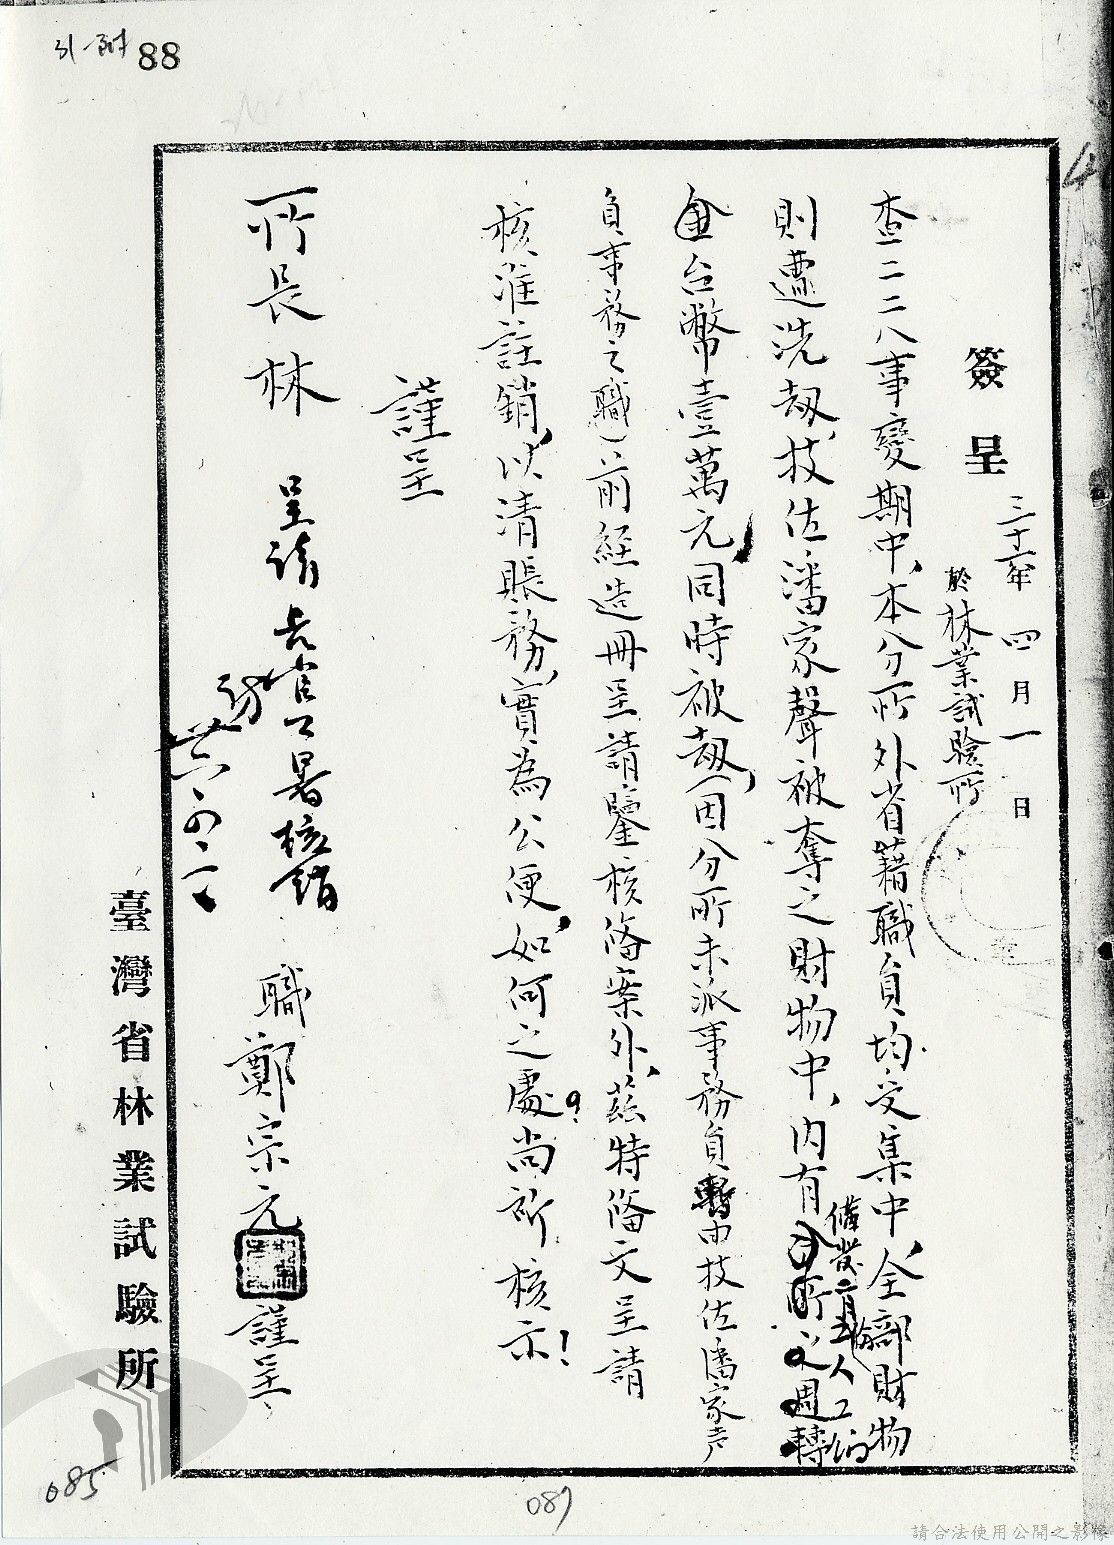 31-附
88
簽呈
三十六年四月一日
於林業試驗所
查二二八事變期中,本分所外省籍職員均受集中,全部財物
則遭洗劫,技佐潘家聲被奪之財物中,內有分所之週轉
備發二月份工人工餉
金台幣壹萬元,同時被劫,(因分所未派事務員暫由技佐潘家声
負事務之職)前經造冊呈請鑒核俻案外,茲特俻文呈請
核准註銷,以清賬務,實為公便,如何之處?尚祈核示!
謹呈
所長林
呈請長官公署核銷
卅六、四、二
職鄭宗元謹呈
臺灣省林業試驗所
085
087
請合法使用公開之影像